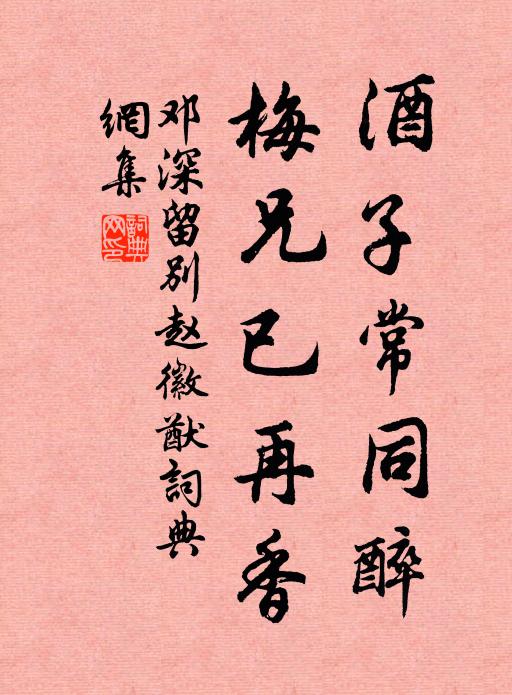 酒子常同醉
梅兄已再香
邓深留别赵徽猷詞典
網集
詞典網印